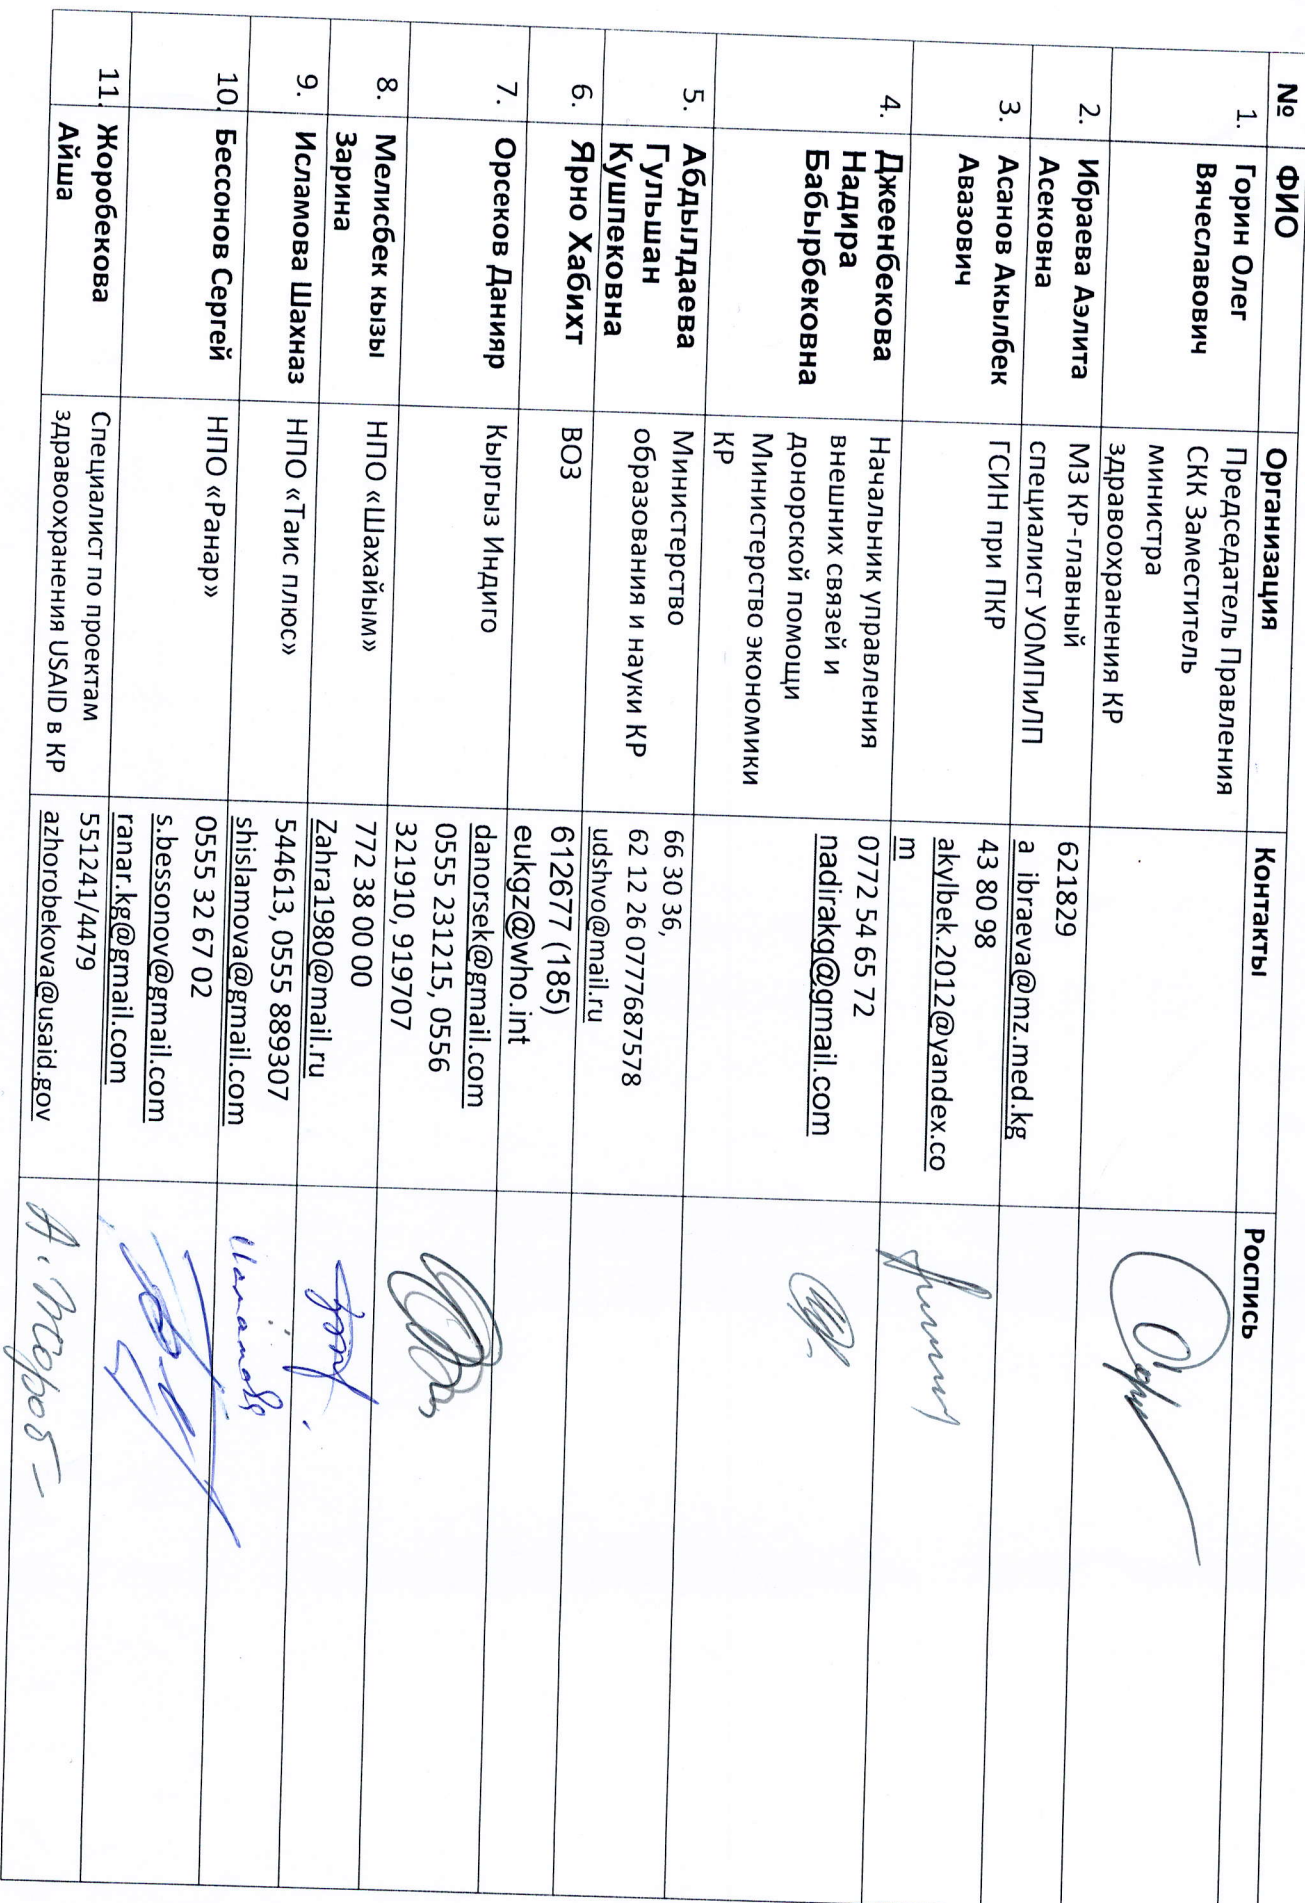 № ФИО Организация Контакты Роспись
1. Горин Олег
Вячеславович
Председатель Правления
СКК Заместитель
министра
здравоохранения КР
2. Ибраева Аэлита
Асековна
МЗ КР-главный
специалист УОМПиЛП
621829
a_ibraeva@mz.med.kg
3. Асанов Акылбек
Авазович
ГСИН при ПКР
43 80 98
akylbek.2012@yandex.co
m
4. Джеенбекова
Надира
Бабырбековна
Начальник управления
внешних связей и
донорской помощи
Министерство экономики
КР
0772 54 65 72
nadirakg@gmail.com
5. Абдылдаева
Гульшан
Кушпековна
Министерство
образования и науки КР
66 30 36,
62 12 26 0777687578
udshvo@mail.ru
6. Ярно Хабихт
ВОЗ
612677 (185)
eukgz@who.int
7. Орсеков Данияр
Кыргыз Индиго
danorsek@gmail.com
0555 231215, 0556
321910, 919707
8. Мелисбек кызы
Зарина
НПО «Шахайым»
772 38 00 00
Zahra1980@mail.ru
9. Исламова Шахназ
НПО «Таис плюс»
544613, 0555 889307
shislamova@gmail.com
10. Бессонов Сергей
НПО «Ранар»
0555 32 67 02
s.bessonov@gmail.com
ranar.kg@gmail.com
11. Жоробекова
Айша
Специалист по проектам
здравоохранения USAID в КР
551241/4479
azhorobekova@usaid.gov